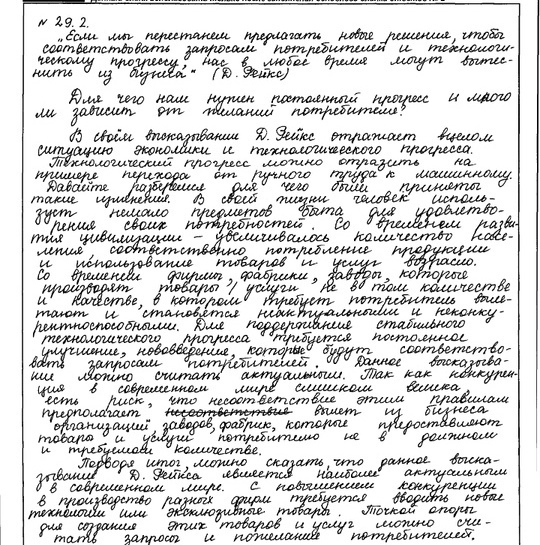 № 29.2.
„Если мы перестанем предлагать новые решения, чтобы
соответствовать запросам потребителей и технологи-
ческому прогрессу, нас в любое время могут вытес-
нить из бизнеса" (Д. Рейкс)
Для чего нам нужен постоянный прогресс и много
ли зависит от желаний потребителя?
В своём высказывании Д. Рейкс отражает в целом
ситуацию экономики и технологического прогресса.
Технологический прогресс можно отразить на
примере перехода от ручного труда к машинному.
Давайте разберёмся для чего были приняты
такие изменения. В своей жизни человек исполь-
зует немало предметов быта для удовлетво-
рения своих потребностей. Со временем разви-
тия цивилизации – увеличивалось количество насе-
ления соответственно потребление продукции
и использование товаров и услуг возрасло.
Со временем фирмы, фабрики, заводы, которые
производят товары / услуги не в том количестве
и качестве, в котором требует потребитель выле-
тают и становятся неактуальными и неконку-
рентноспособными. Для поддержание стабильного
технологического прогресса требуется постоянное
улучшение, нововведения, которые будут соответство-
вать запросам потребителей. Данное высказыва-
ние можно считать актуальным. Так как конкурен-
ция в современном мире слишком велика,
есть риск, что несоответствие этим правилам
предполагает несоответствие вылет из бизнеса
организацией заводов, фабрик, которые предоставляют
товары и услуги потребителю не в должном
и требуемом количестве.
Подводя итог, можно сказать, что данное выска-
зывание Д. Рейкса является наиболее актуальным
в современном мире. С повышением конкуренции
в производство разных фирм требуется вводить новые
технологии или эксклюзивные товары. Точкой опоры
для создания этих товаров и услуг можно счи-
тать запросы и пожелание потребителей.